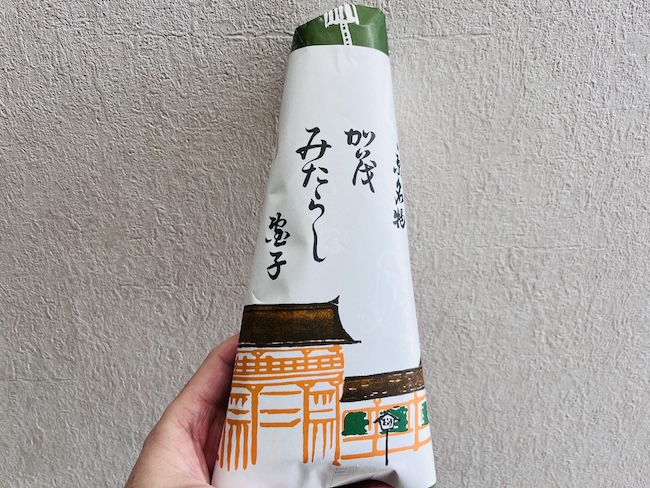 京名物
加茂
みたらし
団子